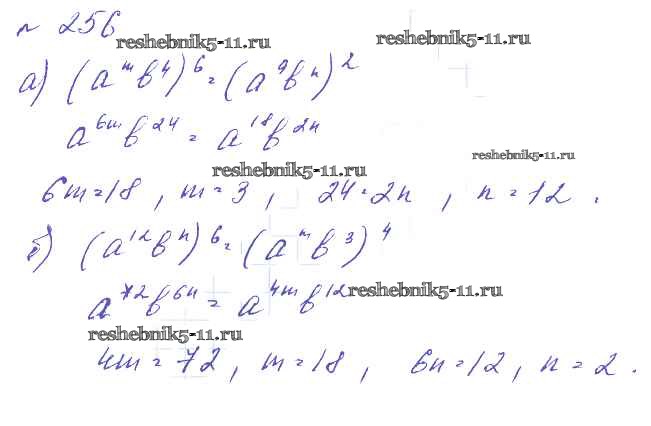 № 256
reshebnik5-11.ru reshebnik5-11.ru
а) (a^m b^4)^6 = (a^9 b^n)^2
a^6m b^24 = a^18 b^2n
reshebnik5-11.ru reshebnik5-11.ru
6m=18, m=3, 24=2n, n=12.
б) (a^12 b^n)^6 = (a^m b^3)^4
a^72 b^6n = a^4m b^12 reshebnik5-11.ru
reshebnik5-11.ru
4m=72, m=18, 6n=12, n=2.